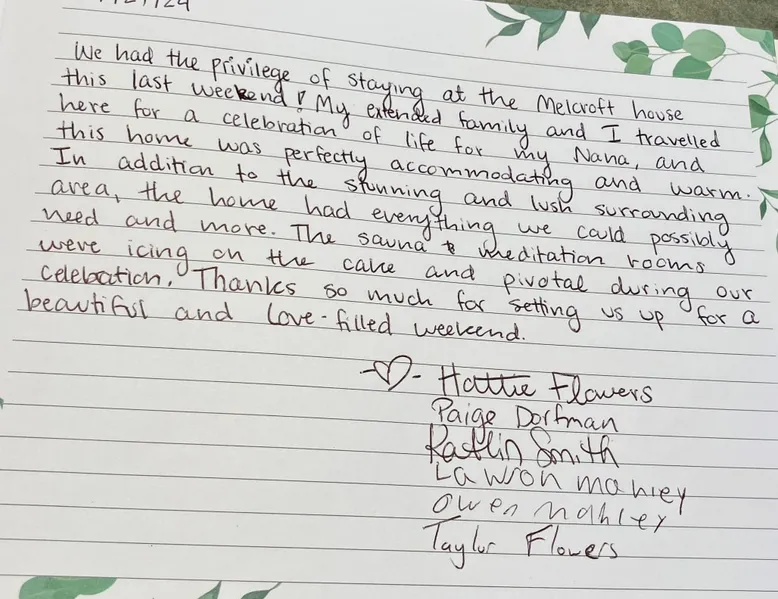 We had the privilege of staying at the Melcroft house
this last weekend! My extended family and I travelled
here for a celebration of life for my Nana, and
this home was perfectly accommodating and warm.
In addition to the stunning and lush surrounding
area, the home had everything we could possibly
need and more. The sauna & meditation rooms
were icing on the cake and pivotal during our
celebration. Thanks so much for setting us up for a
beautiful and love-filled weekend.
-♡- Hattie Flowers
Paige Dorfman
Kaitlin Smith
Lawson Manley
Owen Manley
Taylor Flowers